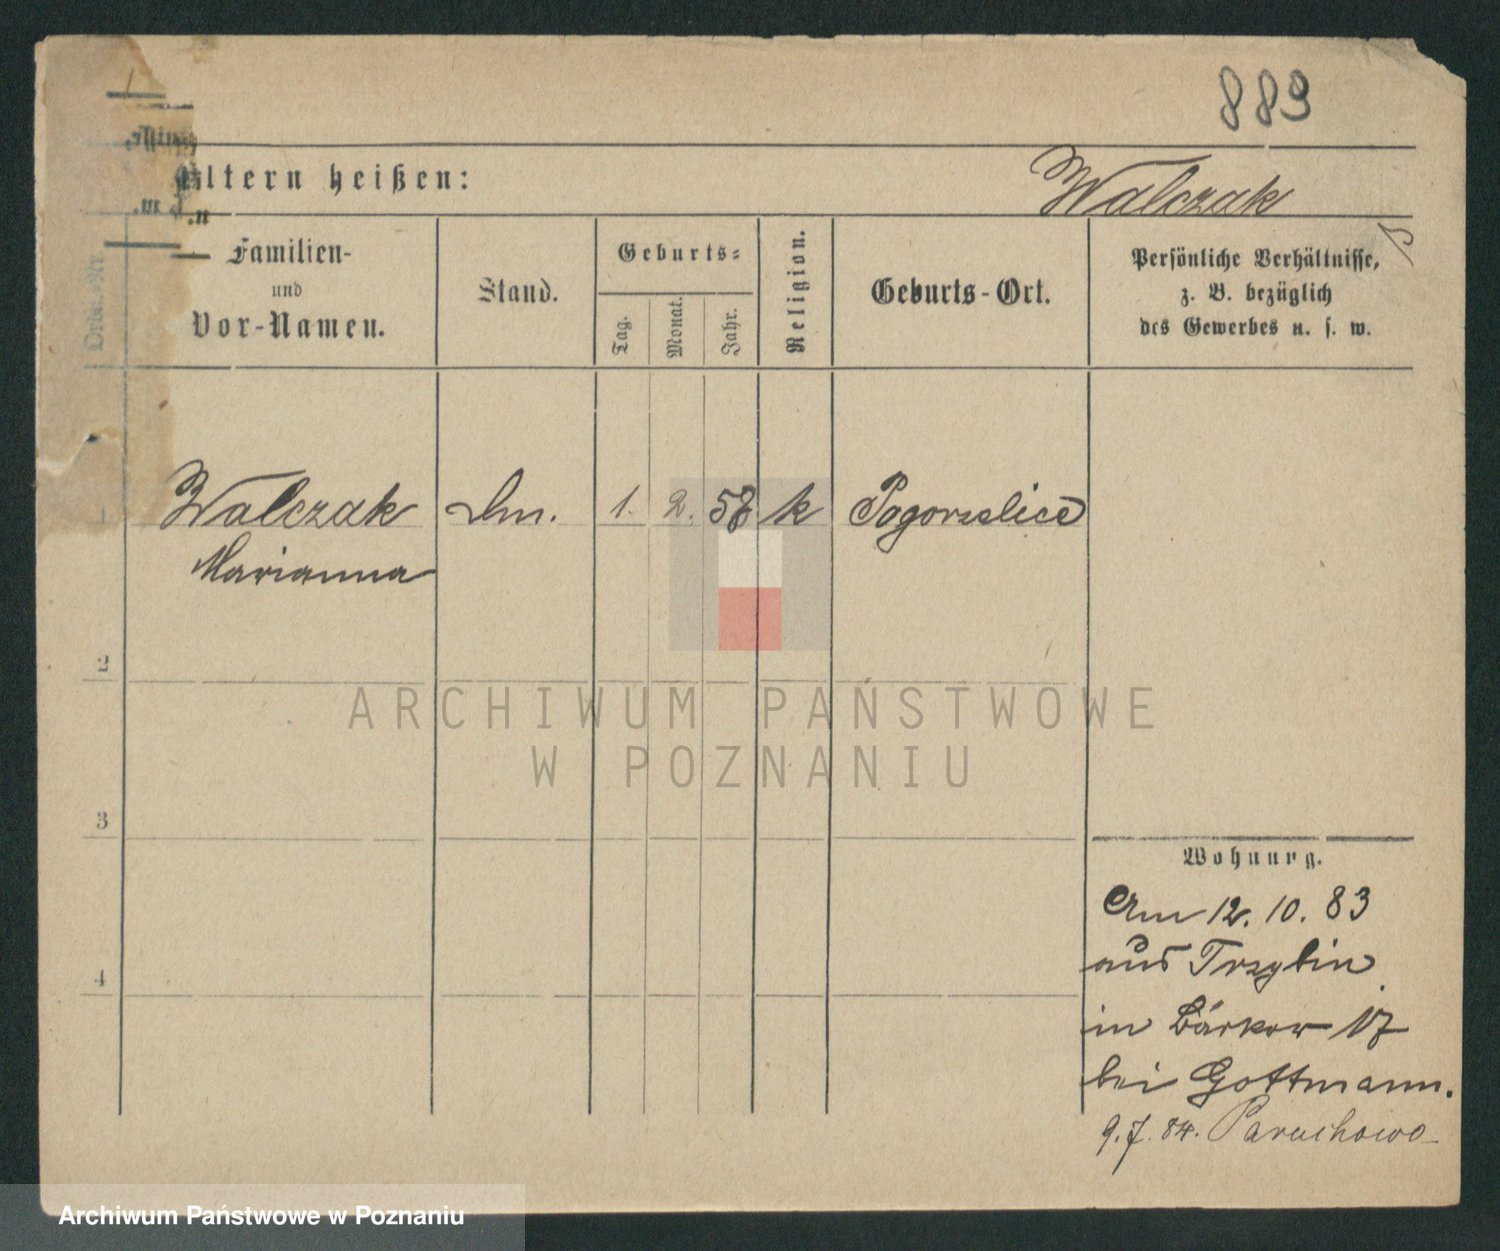 889
Eltern heißen:
Walczak
Ordn. Nr.
Familien-
und
Vor-Namen.
Stand.
Geburts-
Tag.
Monat.
Jahr.
Religion.
Geburts-Ort.
Persönliche Verhältnisse,
z. B. bezüglich
des Gewerbes u. s. w.
1 Walczak Dm. 1. 2. 58 k Pogorzelice
Marianna
2
ARCHIWUM PAŃSTWOWE
W POZNANIU
3
Wohnung.
Am 12. 10. 83
4
aus Trzybin
in Bärkow 17
bei Gottmann.
9. 7. 84. Paruchowo
Archiwum Państwowe w Poznaniu